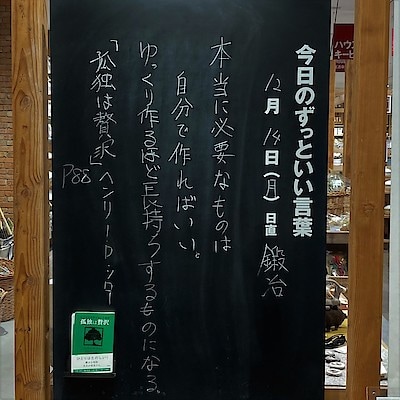 今日のずっといい言葉
12月14日(月)日直 鍛冶
本当に必要なものは
自分で作ればいい。
ゆっくり作るほど長持ちするものになる。
「孤独は贅沢」ヘンリー・D・ソロー
P88
孤独は贅沢
ハウス
キーピ